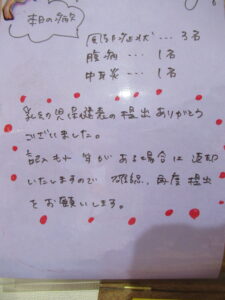 本日の病欠
風邪症状…3名
腹痛…1名
中耳炎…1名
乳幼児保健表の提出ありがとう
ございました。
記入もれ等がある場合は返却
いたしますので確認、再度提出
をお願いします。